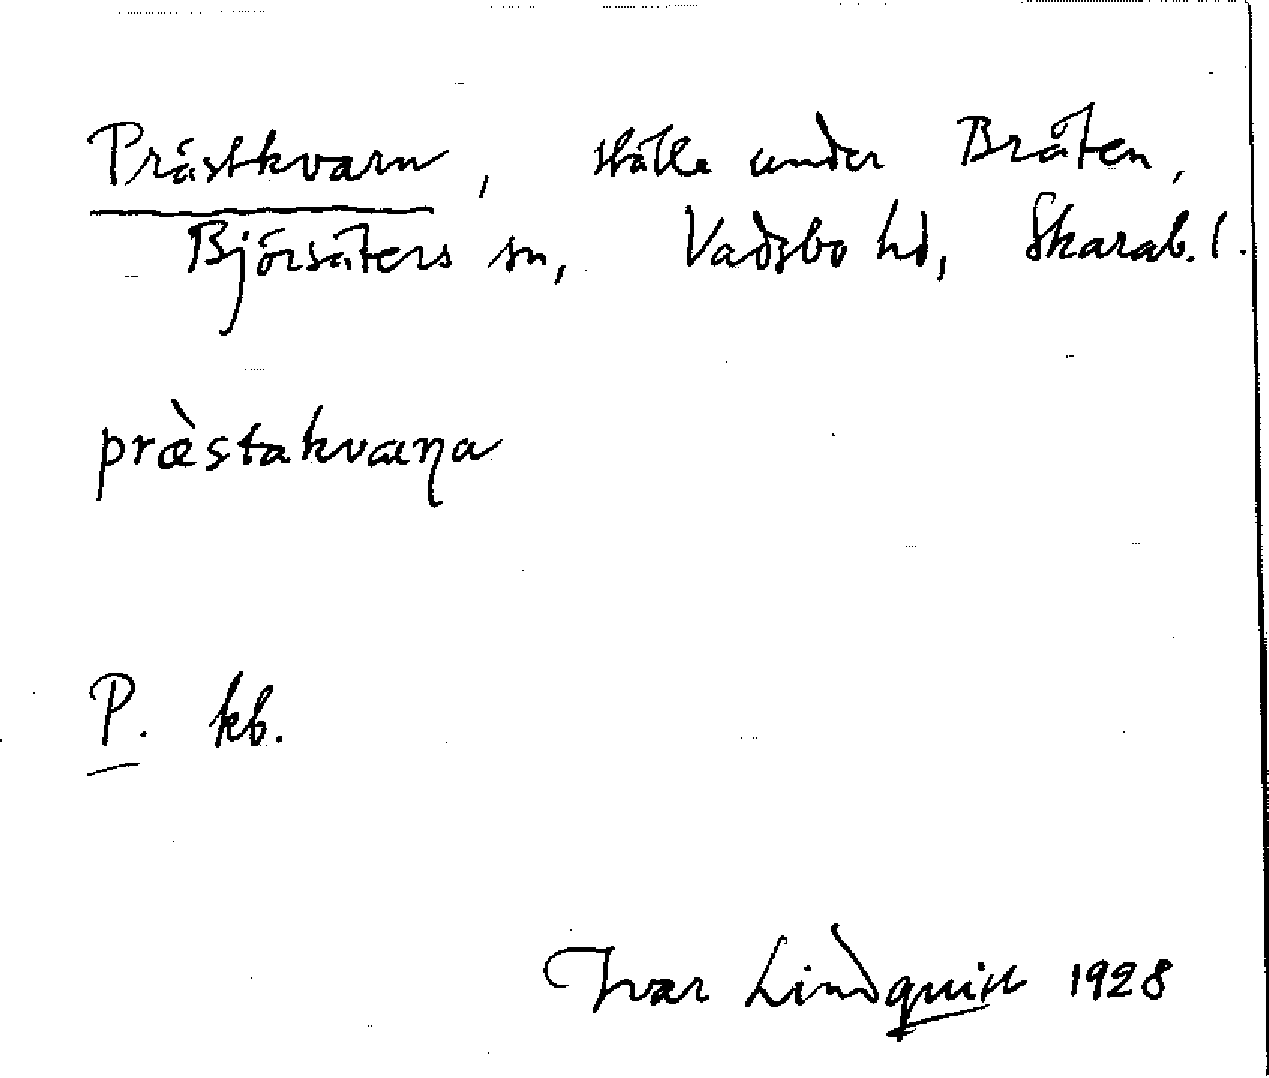 Prästkvarn, ställe under Bråten,
Björsäters sn, Vadsbo hd, Skarab. l.
præ̀stakvæṇa
P. kb.
Ivar Lindquist 1928